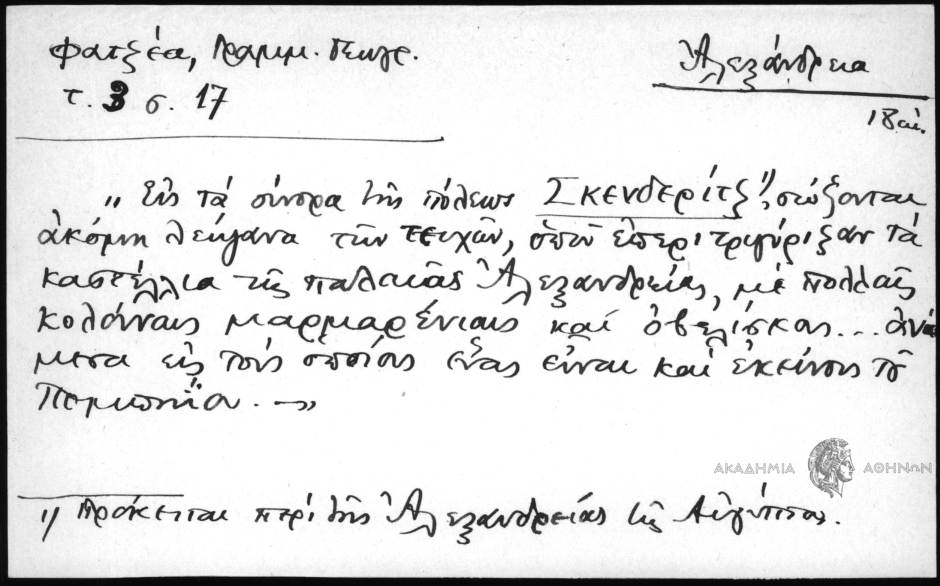 Φατζέα, Γραμμ. Γεωγρ.
Ἀλεξάνδρεια
τ. 3 σ. 17
18 αἰ.
"Εἰς τὰ σύνορα τῆς πόλεως Σκενδερίτζ¹⁾, σώζονται
ἀκόμη λείψανα τῶν τειχῶν, ὁποῦ ἐπεριτριγύριζαν τὰ
καστέλλια τῆς παλαιᾶς Ἀλεξανδρείας, μὲ πολλαῖς
κολόνναις μαρμαρένιαις καὶ ὀβελίσκους... ἀνά
μεσα εἰς τοὺς ὁποίους ἕνας εἶναι καὶ ἐκεῖνος τοῦ
Πομπηΐου. —"
ΑΚΑΔΗΜΙΑ ΑΘΗΝΩΝ
1) Πρόκειται περὶ τῆς Ἀλεξανδρείας τῆς Αἰγύπτου.